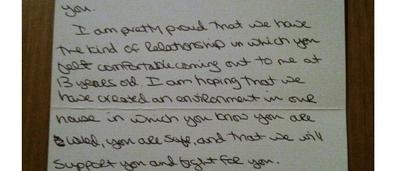 you.
I am pretty proud that we have
the kind of relationship in which you
felt comfortable coming out to me at
13 years old. I am hoping that we
have created an environment in our
house in which you know you are
loved, you are safe, and that we will
support you and fight for you.